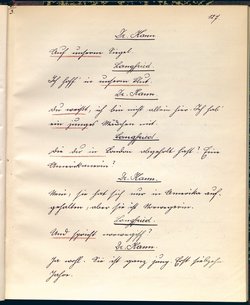 127
Dr. Kann
Auf unserm Segel
Langfried
Ich hoff' in unserm
Dr. Kann.
Du, ich bin nicht allein hier. Ich hab
ein junges Mädchen mit.
Langfried.
Die du in London abgeholt hast? Eine
Amerikanerin?
Dr. Kann
Nein, sie hat sich nur in Amerika auf-
gehalten, aber sie ist Norwegerin.
Langfried.
Und spricht norwegisch?
Dr. Kann.
Ja wohl. Sie ist ganz jung. Erst
Jahre.